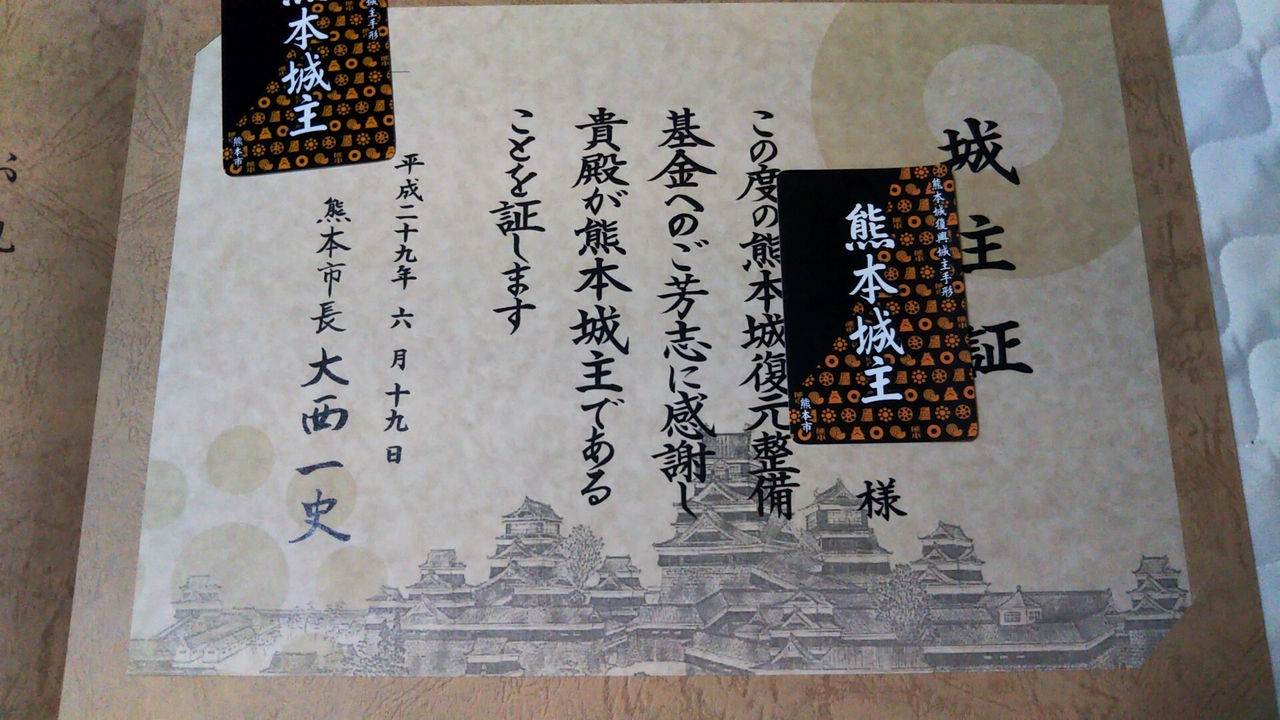 城主証
様
この度の熊本城復元整備
基金へのご芳志に感謝し
貴殿が熊本城主である
ことを証します
平成二十九年 六月十九日
熊本市長 大西一史
熊本城復興城主手形
熊本城主
熊本市
城主手形
熊本城主
熊本市